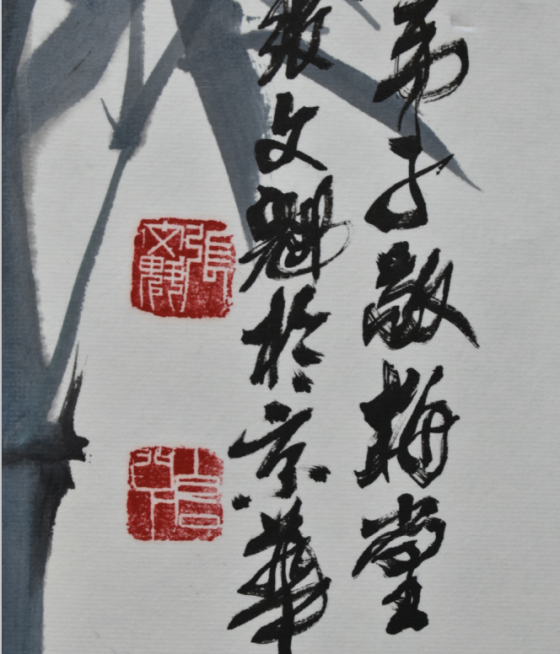 弟子敬梅堂
張文魁於京華
張文